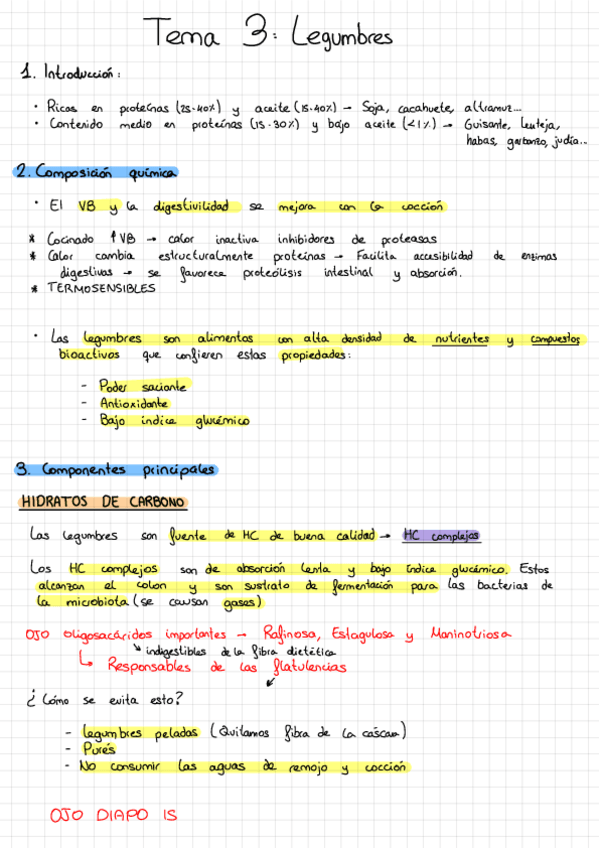 Tema 3: Legumbres
1. Introducción:
• Ricos en proteínas (25-40%) y aceite (15-40%) → Soja, cacahuete, altramuz...
• Contenido medio en proteínas (15-30%) y bajo aceite (<1%) → Guisante, lenteja,
habas, garbanzo, judía...
2. Composición química
• El VB y la digestividad se mejora con la cocción
* Cocinado ↑VB → calor inactiva inhibidores de proteasas
* Calor cambia estructuralmente proteínas → Facilita accesibilidad de enzimas
digestivas → se favorece proteólisis intestinal y absorción.
* TERMOSENSIBLES
• Las legumbres son alimentos con alta densidad de nutrientes y compuestos
bioactivos que confieren estas propiedades:
- Poder saciante
- Antioxidante
- Bajo índice glucémico
3. Componentes principales
HIDRATOS DE CARBONO
Las legumbres son fuente de HC de buena calidad → HC complejos
Los HC complejos son de absorción lenta y bajo índice glucémico. Estos
alcanzan el colon y son sustrato de fermentación para las bacterias de
la microbiota (se causan gases)
OJO oligosacáridos importantes → Rafinosa, Estaquiosa y Maninotriosa
↘ indigestibles de la fibra dietética
↳ Responsables de las flatulencias
¿Cómo se evita esto?
- legumbres peladas (Quitamos fibra de la cáscara)
- Purés
- No consumir las aguas de remojo y cocción
OJO DIAPO 15